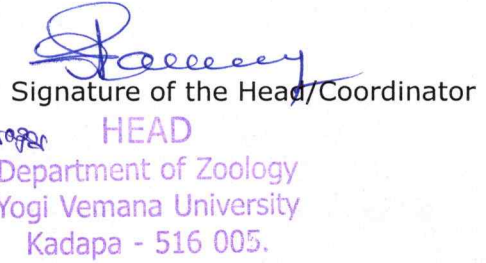 Signature of the Head/Coordinator
HEAD
Department of Zoology
Yogi Vemana University
Kadapa - 516 005.